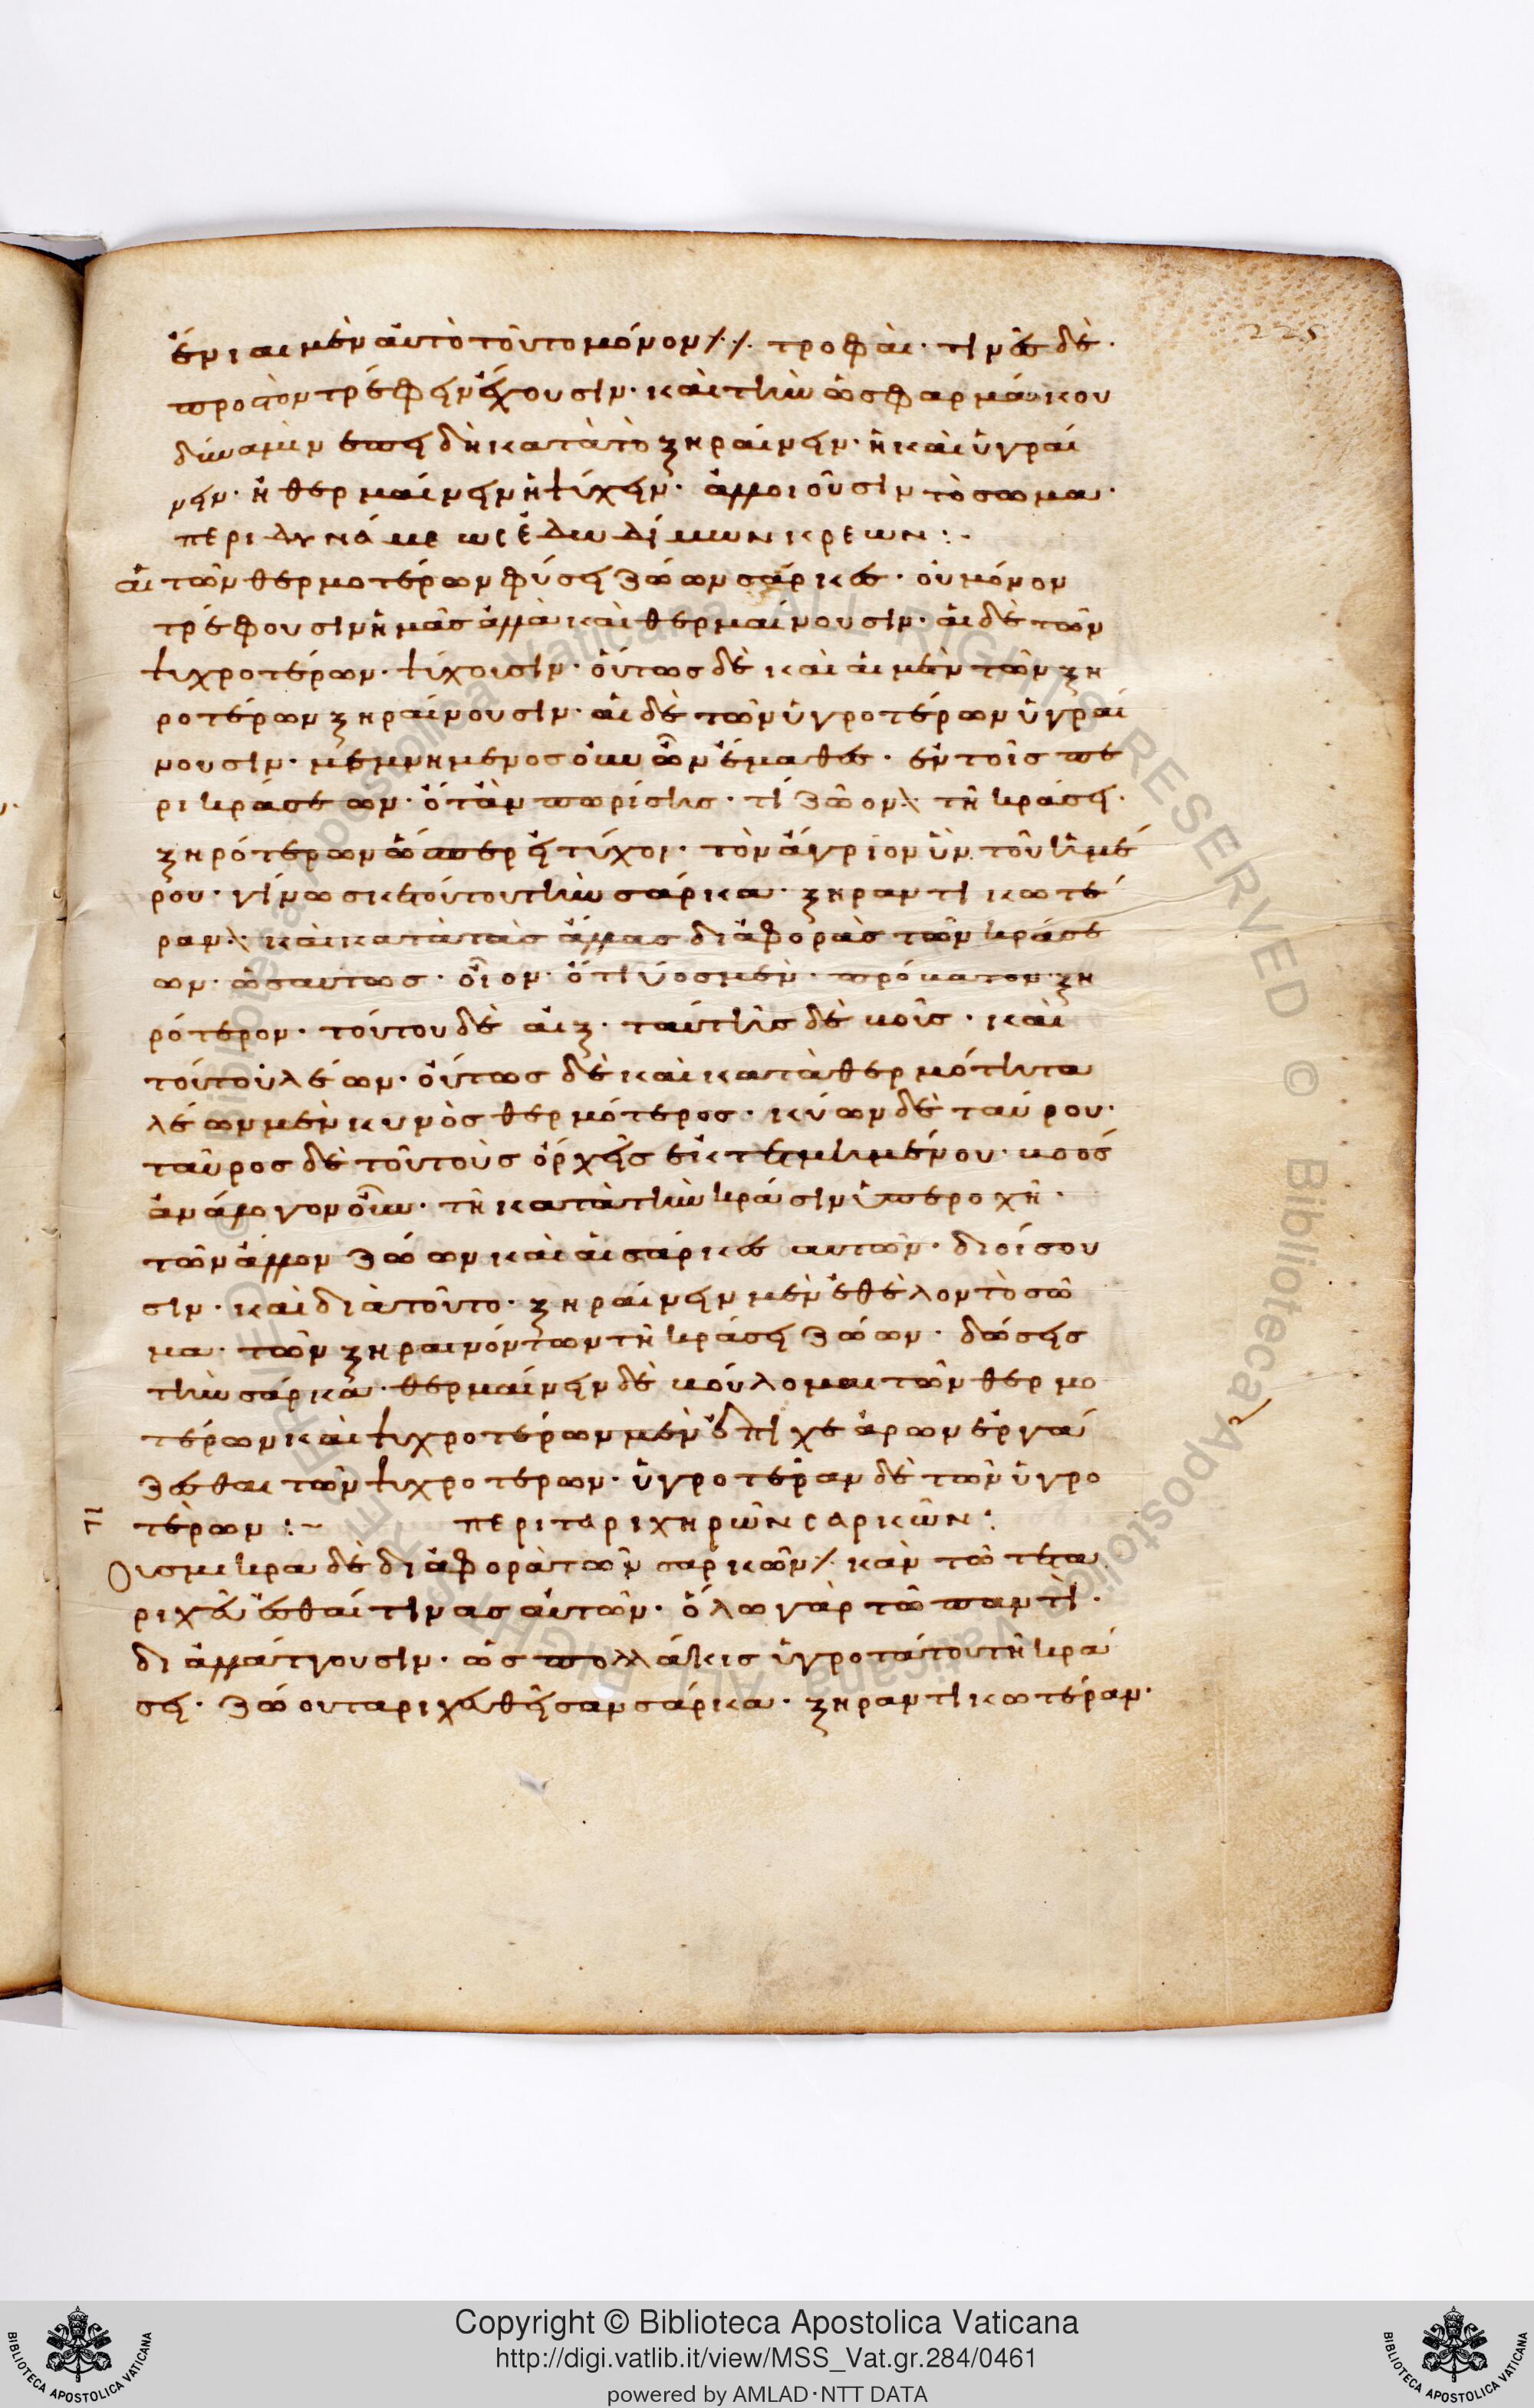 225
ἔνιαι μὲν αὐτὸ τοῦτο μόνον ⁒ τροφαὶ· τινὲς δὲ·
πρὸς τὸν τρέφειν ἔχουσιν· καὶ τὴν ὡς φαρμάκου
δύναμιν ἐπεὶ δὴ κατὰ τὸ ξηραίνειν· ἢ καὶ ὑγραί
νειν· ἢ θερμαίνειν ἢ ψύχειν· ἀλλοιοῦσιν τὸ σωμα·
περι δυνάμεως ἐδωδίμων κρεων :-
αἱ τῶν θερμοτέρων φύσει ζώων σάρκες· οὐ μόνον
τρέφουσιν ἡμᾶς ἀλλὰ καὶ θερμαίνουσιν· αἱ δὲ τῶν
ψυχροτέρων· ψύχουσιν· οὕτως δὲ καὶ αἱ μὲν τῶν ξη
ροτέρων ξηραίνουσιν· αἱ δὲ τῶν ὑγροτέρων ὑγραί
νουσιν· μεμνημένος οὖν ὧν ἔμαθες· ἐν τοῖς πε
ρι κράσεων· ὅταν πωρίσης· τί ζῶον ⁒ τῆ κράσει·
ξηρότερων ὥσπερ εἰ τύχον· τὸν ἄγριον ὗν τοῦ ἡμέ
ρου· γίνωσκε τούτου τὴν σάρκα· ξηραντικωτέ
ραν ⁒ καὶ κατὰ τὰς ἄλλας διαφορὰς τῶν κράσε
ων· ὡσαυτως· οἷον· ὅτι ὑὸς μὲν· πρόβατον ξη
ρότερον· τούτου δὲ αἲξ· ταύτης δὲ βοῦς· καὶ
τούτου λέων· οὕτως δὲ καὶ κατὰ θερμότητα
λέων μὲν κυνὸς θερμότερος· κύων δὲ ταύρου·
ταῦρος δὲ τοῦ τοὺς ὄρχεις ἐκτετμημένου· βοός
ἀνάλογον οὖν· τῆ κατὰ τὴν κράσιν ὑπεροχῆ·
τῶν ἄλλον ζώων καὶ αἱ σάρκες αυτῶν· διοίσου
σιν· καὶ διὰ τοῦτο· ξηραίνειν μὲν ἐθέλον τὸ σῶ
μα· τῶν ξηραινόντων τῆ κράσει ζώων· δώσεις
τὴν σάρκα· θερμαίνειν δὲ βούλομαι τῶν θερμο
τέρων καὶ ψυχροτέρων μὲν ἐπιχεάρων ἐργά
ζεσθαι τῶν ψυχροτέρων· ὑγροτέραν δὲ τῶν ὑγρο
τέρων :- περι ταριχηρῶν σαρκῶν :
Ου σμικρα δὲ διαφορὰ τῶν σαρκῶν ⁒ κἀν τῶ τετα
ριχεῦσθαί τινας αὐτῶν· ὅλω γὰρ τῶ παντὶ·
διαλλάττουσιν· ὡς πολλάκις ὑγροτάτου τῆ κρά
σει· ζώου ταριχευθεῖσαν σάρκα· ξηραντικωτέραν·
Copyright © Biblioteca Apostolica Vaticana
http://digi.vatlib.it/view/MSS_Vat.gr.284/0461
powered by AMLAD·NTT DATA